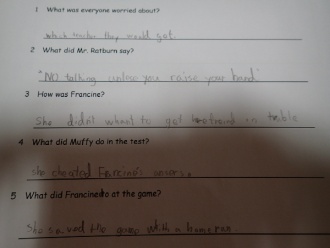 1 What was everyone worried about?
which teacher they would get.
2 What did Mr. Ratburn say?
"NO talking unless you raise your hand"
3 How was Francine?
She didn't to get in
4 What did Muffy do in the test?
she cheated
5 What did Francine do at the game?
She saved the game with a